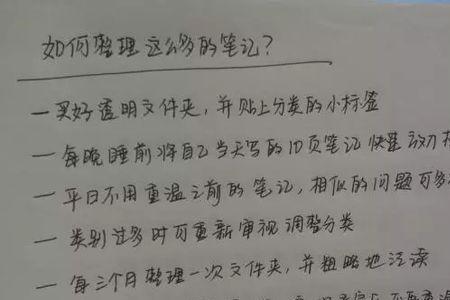 如何整理这么多的笔记?
一 买好透明文件夹，并贴上分类的小标签
一 每晚睡前将自己当天写的10页笔记快速
一 平日不用重温之前的笔记，相似的问题可多
一 类别过多时可重新审视调整分类
一 每三个月整理一次文件夹，并粗略地泛读